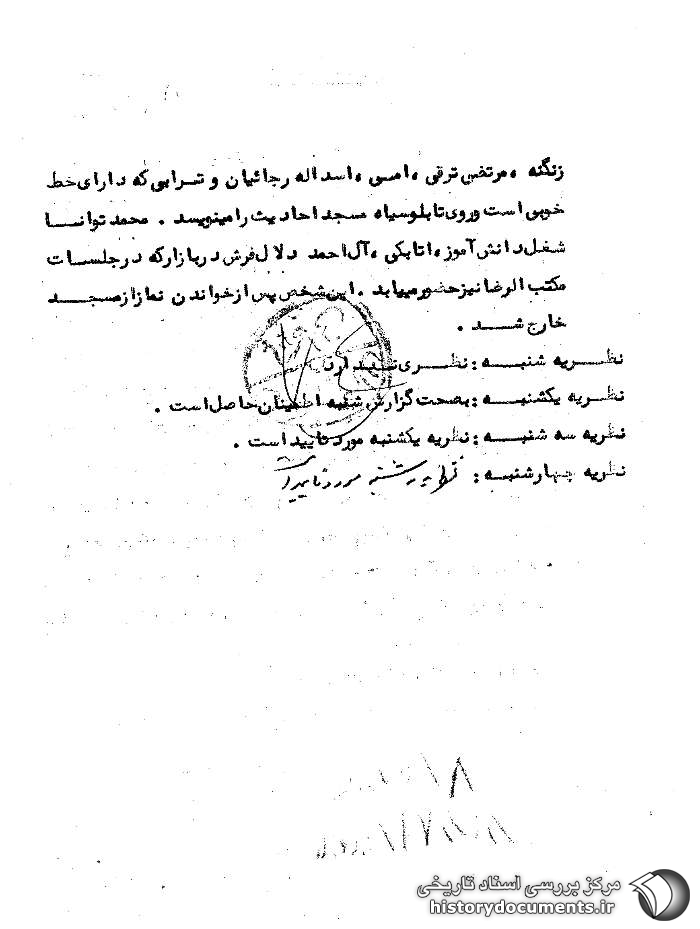 زنگنه ، مرتضی ترقی ، امسی ، اسداله رجائیان و ترابی که دارای خط
خوبی است و روی تابلو سیاه مسجد احادیث را مینویسد . محمد توانا
شغل دانش آموز ، اتابکی ، آل احمد دلال فرش در بازار که در جلسات
مکتب الرضا نیز حضور مییابد . این شخص پس از خواندن نماز از مسجد
خارج شد .
نظریه شنبه : نظری ندارد
نظریه یکشنبه : بصحت گزارش شنبه اطمینان حاصل است .
نظریه سه شنبه : نظریه یکشنبه مورد تایید است .
نظریه چهارشنبه : نظریه سه شنبه مورد تایید است
مرکز بررسی اسناد تاریخی
historydocuments.ir